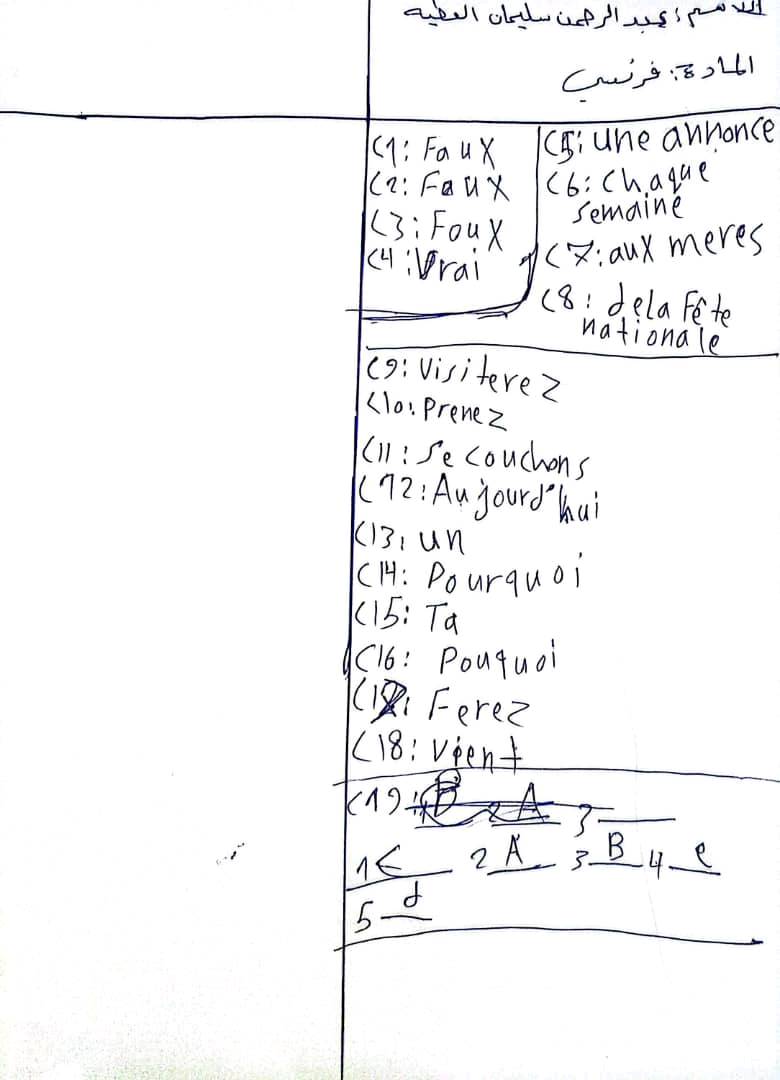 الاسم: عبد الرحمن سليمان العطيه
المادة: فرنسي
(1: Faux
(2: Faux
(3: Foux
(4: Vrai
(5: une annonce
(6: chaque
semaine
(7: aux meres
(8: dela Fête
nationale
(9: Visiterez
(10: Prenez
(11: Se couchons
(12: Aujourd'hui
(13: un
(14: Pourquoi
(15: Ta
(16: Pouquoi
(17: Ferez
(18: Vient
(19: B 2 A 3
1 E 2 A 3 B 4 e
5 d